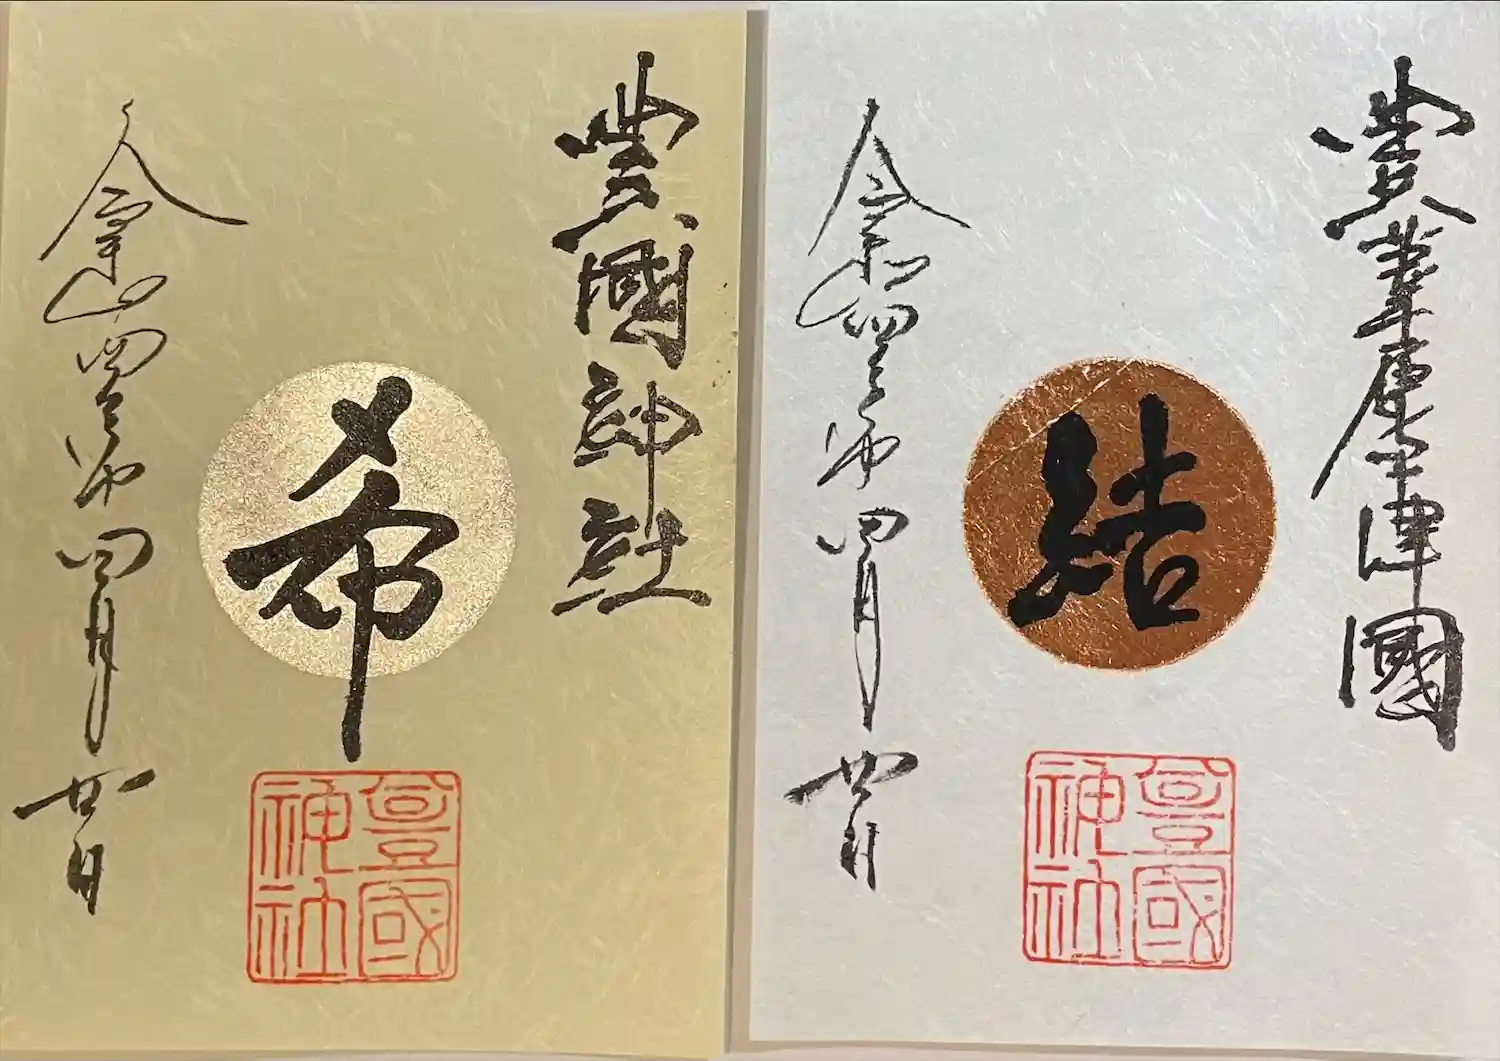 豊國神社
希
豊國
神社
令和四 四月廿日
豊葦原中津國
結
豊國
神社
令和四 四月廿日